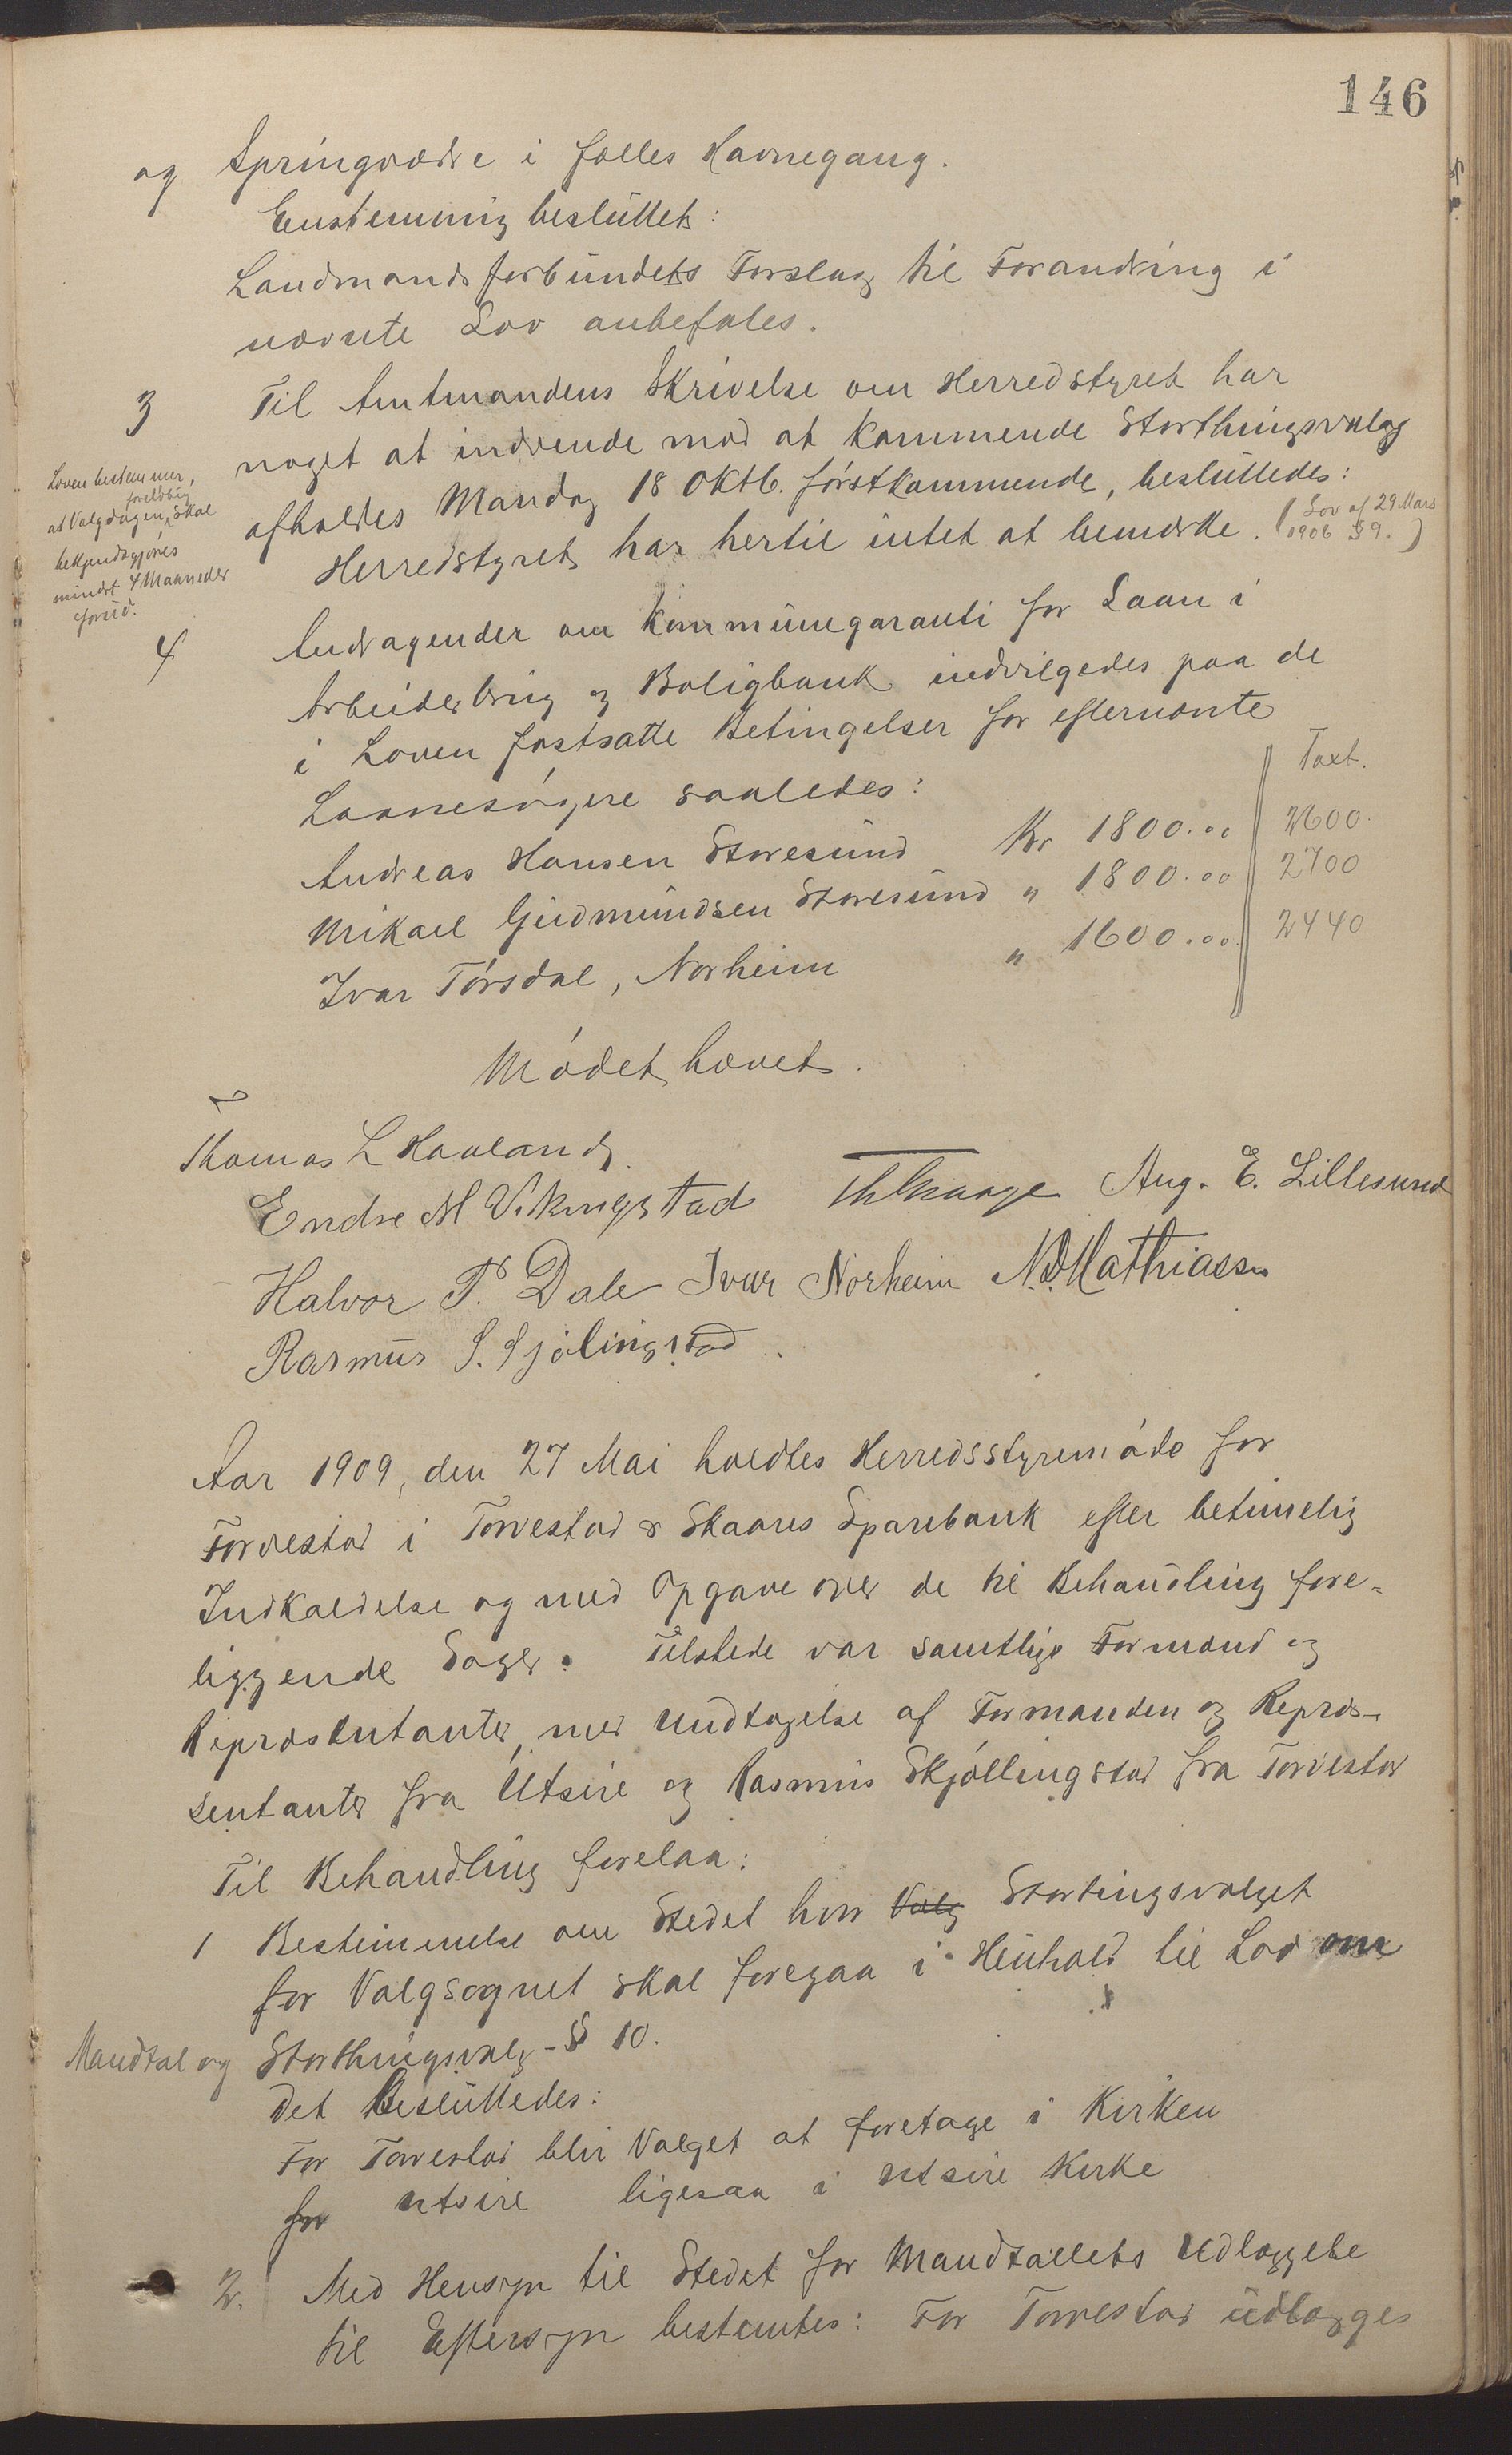 146
og Springvædre i fælles Havnegang.
Enstemmig besluttet:
Landmandsforbundets Forslag til Forandring i
nævnte Lov anbefales.
3 Til Amtmandens Skrivelse om Herredstyret har
noget at indvende mod at kommende Storthingsvalg
afholdes Mandag 18 Oktb. førstkommende, besluttedes:
Herredstyret har hertil intet at bemærke. (Lov af 29 Mars
1906 § 9.)
Loven bestemmer,
at Valgdagen foreløbig skal
bekjendtgjøres
mindst 4 Maaneder
forud.
4 Andragender om Kommunegaranti for Laan i
Arbeiderbrug og Boligbank indvilgedes paa de
i Loven fastsatte Betingelser for efternævnte
Laanesøgere saaledes:
Taxt.
Andreas Hansen Storesund Kr 1800.00 2600.
Mikael Gudmundsen Storesund " 1800.00 2700
Ivar Tørsdal, Norheim " 1600.00 2440
Mødet hævet.
Thomas L Havland
Endre M Vikingstad Aug. E. Lillesund
Halvor P. Dale Ivar Norheim N. D. Mathiassen
Rasmus S. Sjølingstad.
Aar 1909, den 27 Mai holdtes Herredsstyremøde for
Torvestad i Torvestad & Skaares Sparebank efter betimelig
Indkaldelse og med Opgave over de til Behandling fore-
liggende Sager. Tilstede var samtlige Formænd og
Repræsentanter, med Undtagelse af Formanden og Repræ-
sentanter fra Utsire og Rasmus Skjøllingstad fra Torvestad
Til Behandling forelaa:
1 Bestemmelse om Stedet hvor Valg Stortingsvalget
for Valgsognet skal foregaa i Henhold til Lov om
Mandtal og Storthingsvalg - § 10.
Det Besluttedes:
For Torvestad blir Valget at foretage i Kirken
for Utsire ligesaa i Utsire Kirke
2. Med Hensyn til Stedet for Mandtallets Udlæggelse
til Eftersyn bestemtes: For Torvestad udlægges